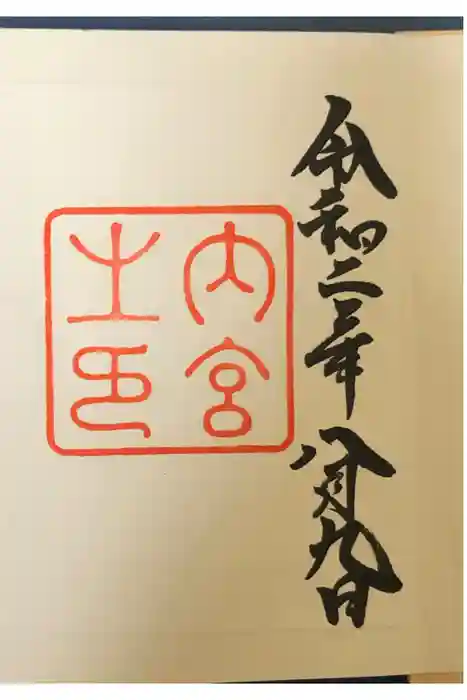 令和二年八月九日
内宮
之印